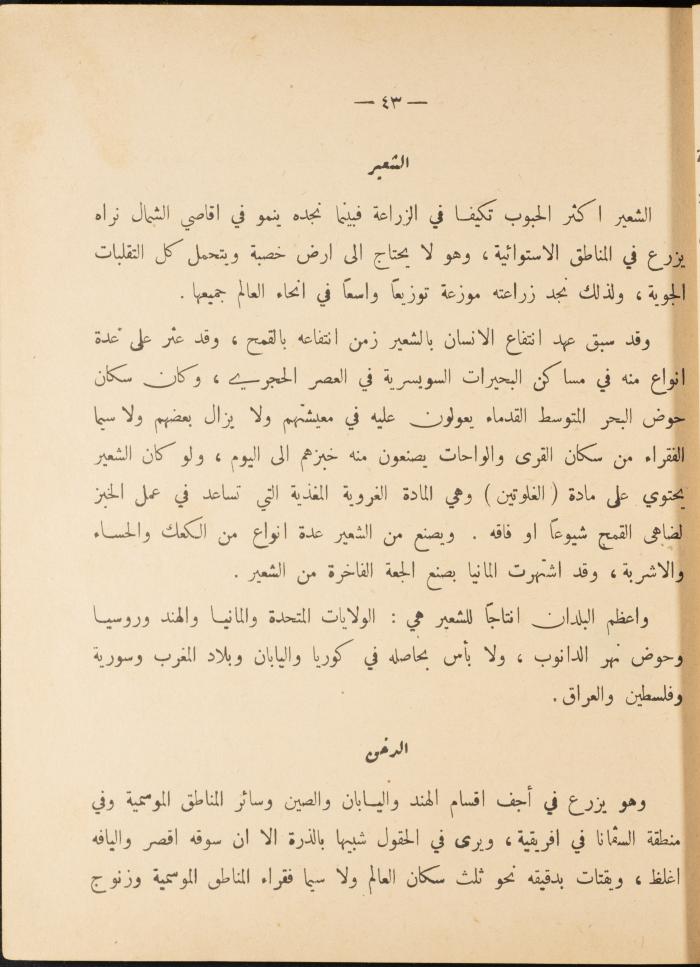 — ٤٣ —
الشعير
الشعير اكثر الحبوب تكيفا في الزراعة فبينما نجده ينمو في اقاصي الشمال نراه
يزرع في المناطق الاستوائية ، وهو لا يحتاج الى ارض خصبة ويتحمل كل التقلبات
الجوية ، ولذلك نجد زراعته موزعة توزيعاً واسعاً في انحاء العالم جميعها .
وقد سبق عهد انتفاع الانسان بالشعير زمن انتفاعه بالقمح ، وقد عثر على عدة
انواع منه في مساكن البحيرات السويسرية في العصر الحجري ، وكان سكان
حوض البحر المتوسط القدماء يعولون عليه في معيشتهم ولا يزال بعضهم ولا سيما
الفقراء من سكان القرى والواحات يصنعون منه خبزهم الى اليوم ، ولو كان الشعير
يحتوي على مادة ( الغلوتين ) وهي المادة الغروية المغذية التي تساعد في عمل الخبز
لضاهى القمح شيوعاً او فاقه . ويصنع من الشعير عدة انواع من الكعك والحساء
والاشربة ، وقد اشتهرت المانيا بصنع الجعة الفاخرة من الشعير .
واعظم البلدان انتاجاً للشعير هي : الولايات المتحدة والمانيا والهند وروسيا
وحوض نهر الدانوب ، ولا بأس بحاصله في كوريا واليابان وبلاد المغرب وسورية
وفلسطين والعراق .
الدخن
وهو يزرع في أجف اقسام الهند واليابان والصين وسائر المناطق الموسمية وفي
منطقة السڤانا في افريقية ، ويرى في الحقول شبيها بالذرة الا ان سوقه اقصر واليافه
اغلظ ، ويقتات بدقيقه نحو ثلث سكان العالم ولا سيما فقراء المناطق الموسمية وزنوج